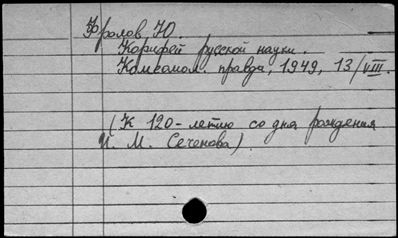 Фролов, Ю.
Корифей русской науки.
Комсомол. правда, 1949, 13/VIII.
(К 120-летию со дня рождения
И. М. Сеченова).